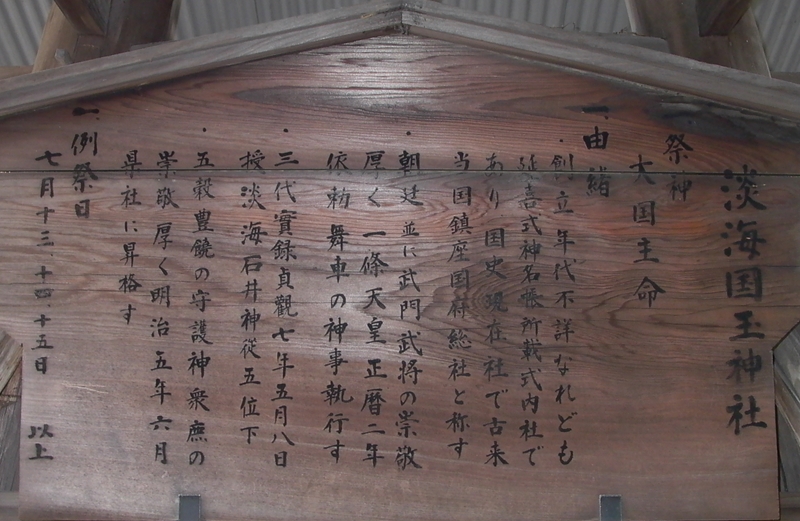 淡海国玉神社
祭神
大国主命
一、由緒
・創立年代不詳なれども
延喜式神名帳所載式内社で
あり国史現在社で古来
当国鎮座国府総社と称す
・朝廷並に武門武将の崇敬
厚く一條天皇正暦二年
依勅舞車の神事執行す
・三代實録貞觀七年五月八日
授淡海石井神従五位下
・五穀豊饒の守護神衆庶の
崇敬厚く明治五年六月
県社に昇格す
一、例祭日
七月十三、十四、十五日
以上